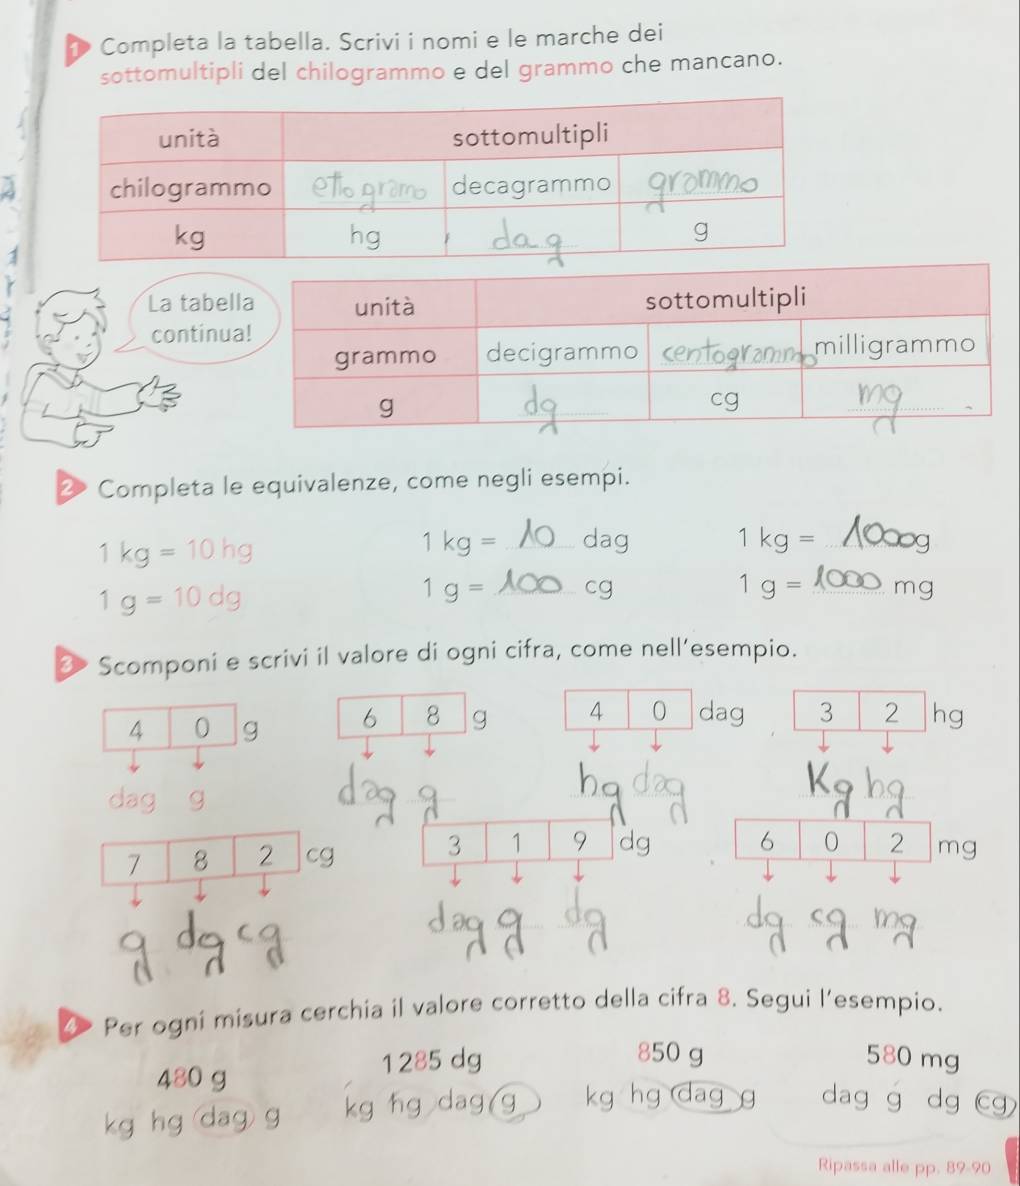 1 Completa la tabella. Scrivi i nomi e le marche dei
sottomultipli del chilogrammo e del grammo che mancano.
unità sottomultipli
chilogrammo ettogrammo decagrammo grammo
kg hg dag g
La tabella
continua!
unità sottomultipli
grammo decigrammo centogrammo milligrammo
g dg cg mg
2 Completa le equivalenze, come negli esempi.
1 kg = 10 hg 1 kg = 10 dag 1 kg = 1000 g
1 g = 10 dg 1 g = 100 cg 1 g = 1000 mg
3 Scomponi e scrivi il valore di ogni cifra, come nell'esempio.
4 0 g 6 8 g 4 0 dag 3 2 hg
dag g dag g hg dag Kg hg
7 8 2 cg 3 1 9 dg 6 0 2 mg
g dg cg dag g dg dg cg mg
4 Per ogni misura cerchia il valore corretto della cifra 8. Segui l'esempio.
480 g 1285 dg 850 g 580 mg
kg hg dag g kg hg dag g kg hg dag g dag g dg cg
Ripassa alle pp. 89-90